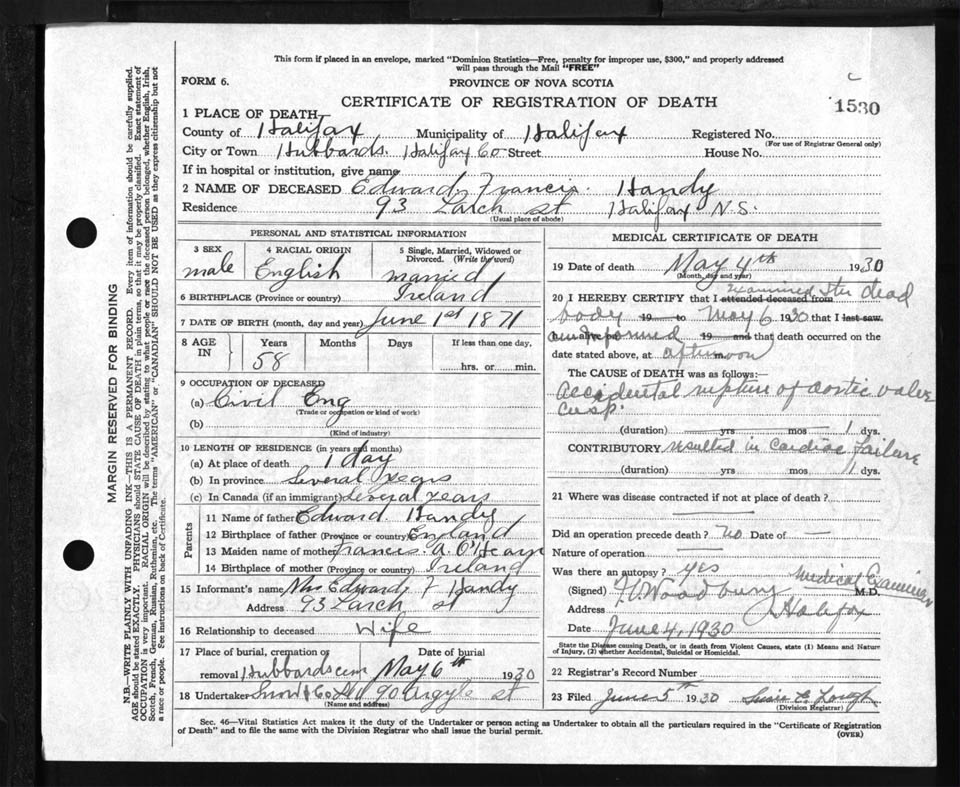 This form if placed in an envelope, marked "Dominion Statistics—Free, penalty for improper use, $300," and properly addressed
will pass through the Mail "FREE"
FORM 6.
PROVINCE OF NOVA SCOTIA
CERTIFICATE OF REGISTRATION OF DEATH
1530
1 PLACE OF DEATH
County of Halifax, Municipality of Halifax Registered No.
(For use of Registrar General only)
City or Town Hubbards. Halifax Co Street House No.
If in hospital or institution, give name
2 NAME OF DECEASED Edward Francis. Handy
Residence 93 Larch st Halifax N.S.
(Usual place of abode)
PERSONAL AND STATISTICAL INFORMATION
3 SEX 4 RACIAL ORIGIN 5 Single, Married, Widowed or
Divorced. (Write the word)
male English married
6 BIRTHPLACE (Province or country) Ireland
7 DATE OF BIRTH (month, day and year) June 1st 1871
8 AGE IN Years Months Days If less than one day,
58 hrs. or min.
9 OCCUPATION OF DECEASED
(a) Civil Eng
(Trade or occupation or kind of work)
(b)
(Kind of industry)
10 LENGTH OF RESIDENCE (in years and months)
(a) At place of death 1 day
(b) In province Several years
(c) In Canada (if an immigrant) several years
Parents
11 Name of father Edward. Handy
12 Birthplace of father (Province or country) England
13 Maiden name of mother Francis. A. O'Hearn
14 Birthplace of mother (Province or country) Ireland
15 Informant's name Mrs Edward F Handy
Address 93 Larch st
16 Relationship to deceased Wife
17 Place of burial, cremation or Date of burial
removal Hubbards cem May 6th 1930
18 Undertaker Snow & Co Ltd 90 Argyle st
(Name and address)
MEDICAL CERTIFICATE OF DEATH
19 Date of death May 4th 1930
(Month, day and year)
examined the dead
20 I HEREBY CERTIFY that I attended deceased from
body 19 to May 6 1930 that I last saw
informed 19 and that death occurred on the
date stated above, at afternoon
The CAUSE of DEATH was as follows:—
Accidental rupture of aortic valve
cusp.
(duration) yrs mos 1 dys.
CONTRIBUTORY resulted in cardiac failure
(duration) yrs mos 1 dys.
21 Where was disease contracted if not at place of death?
Did an operation precede death? no Date of —
Nature of operation —
Was there an autopsy? yes Medical Examiner
(Signed) Woodbury M.D.
Address Halifax
Date June 4, 1930
State the Disease causing Death, or in death from Violent Causes, state (1) Means and Nature
of Injury, (2) whether Accidental, Suicidal or Homicidal.
22 Registrar's Record Number
23 Filed June 5th 1930 Susie E. Lough
(Division Registrar)
Sec. 46—Vital Statistics Act makes it the duty of the Undertaker or person acting as Undertaker to obtain all the particulars required in the "Certificate of Registration
of Death" and to file the same with the Division Registrar who shall issue the burial permit.
(OVER)
MARGIN RESERVED FOR BINDING
N.B.—WRITE PLAINLY WITH UNFADING INK—THIS IS A PERMANENT RECORD. Every item of information should be carefully supplied.
AGE should be stated EXACTLY. PHYSICIANS should STATE CAUSE OF DEATH in plain terms, so that it may be properly classified. Exact statement of
OCCUPATION is very important. RACIAL ORIGIN will be described by stating to what people or race the deceased person belonged, whether English, Irish,
Scotch, French, German, Russian, Ruthenian, etc. The terms "AMERICAN" or "CANADIAN" SHOULD NOT BE USED as they express citizenship but not
a race or people. See instructions on back of Certificate.